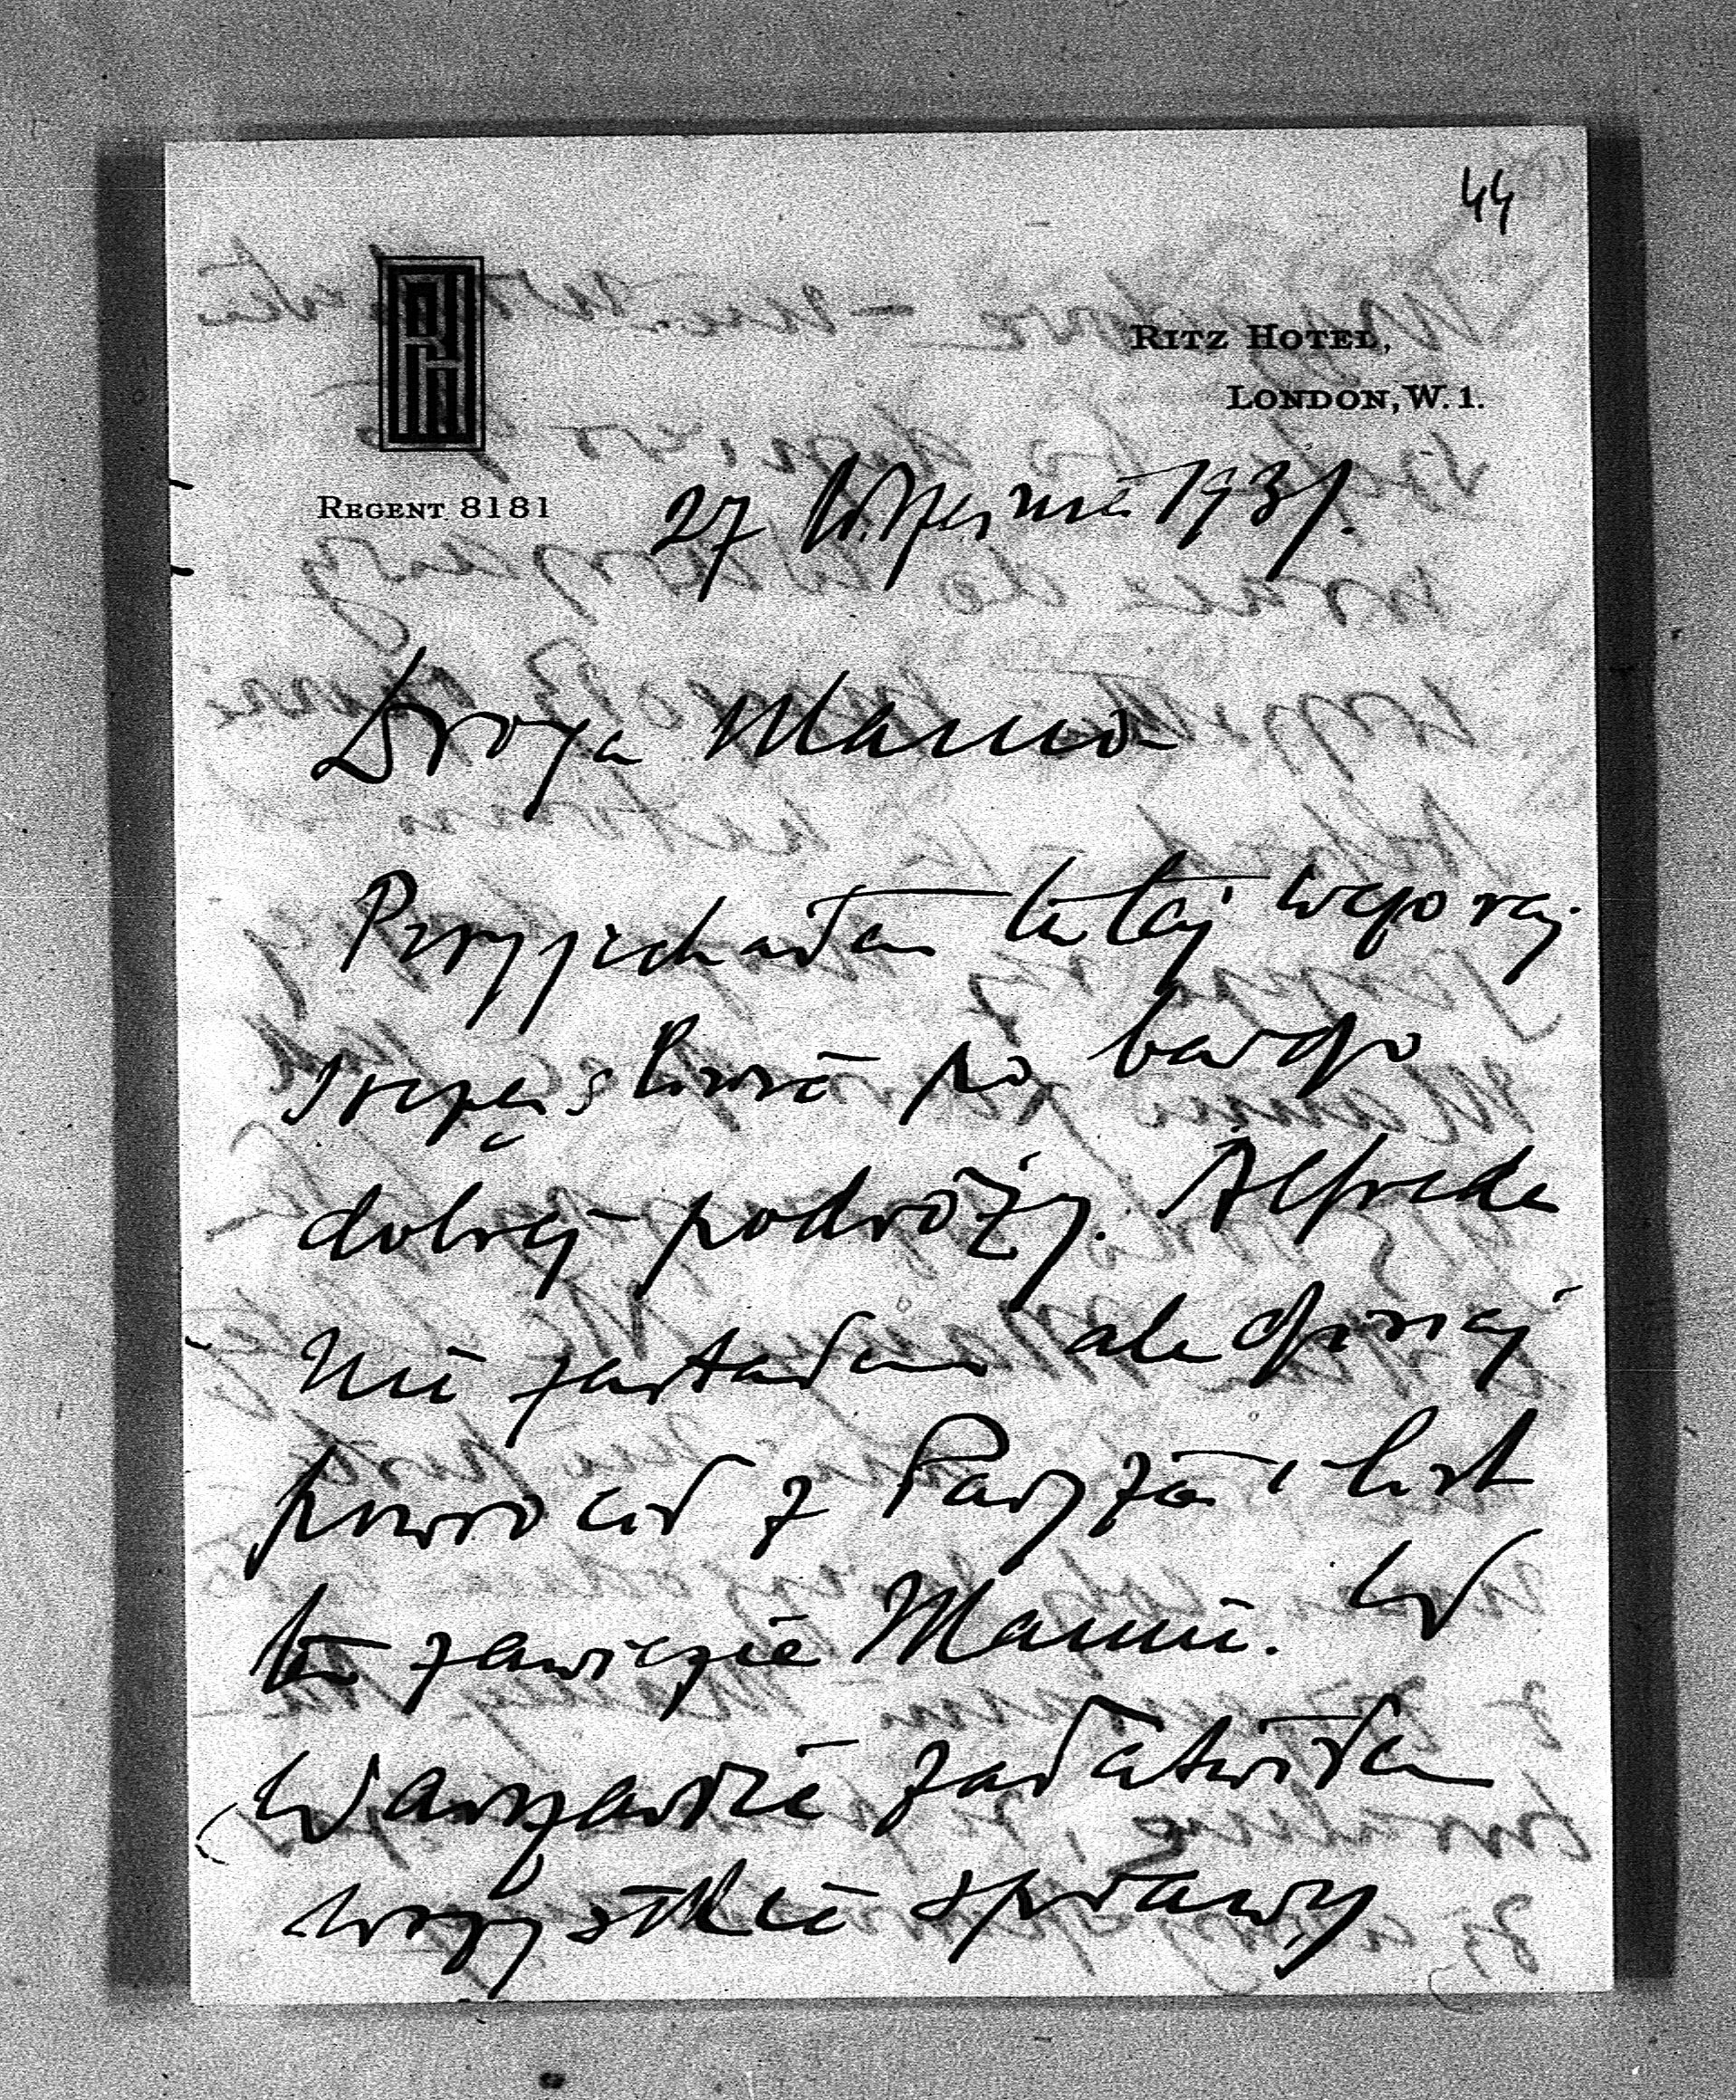 44
RITZ HOTEL,
LONDON, W. 1.
REGENT 8181
27 Sierpnia 1931.
Droga Mamo
Przyjechałam tutaj wczoraj
szczęśliwie po bardzo
dobrej podróży. Alfreda
nie zastałam ale dzisiaj
powrócił z Paryża i list
ten zawiezie Mamie. W
Warszawie załatwiłam
wszystkie sprawy